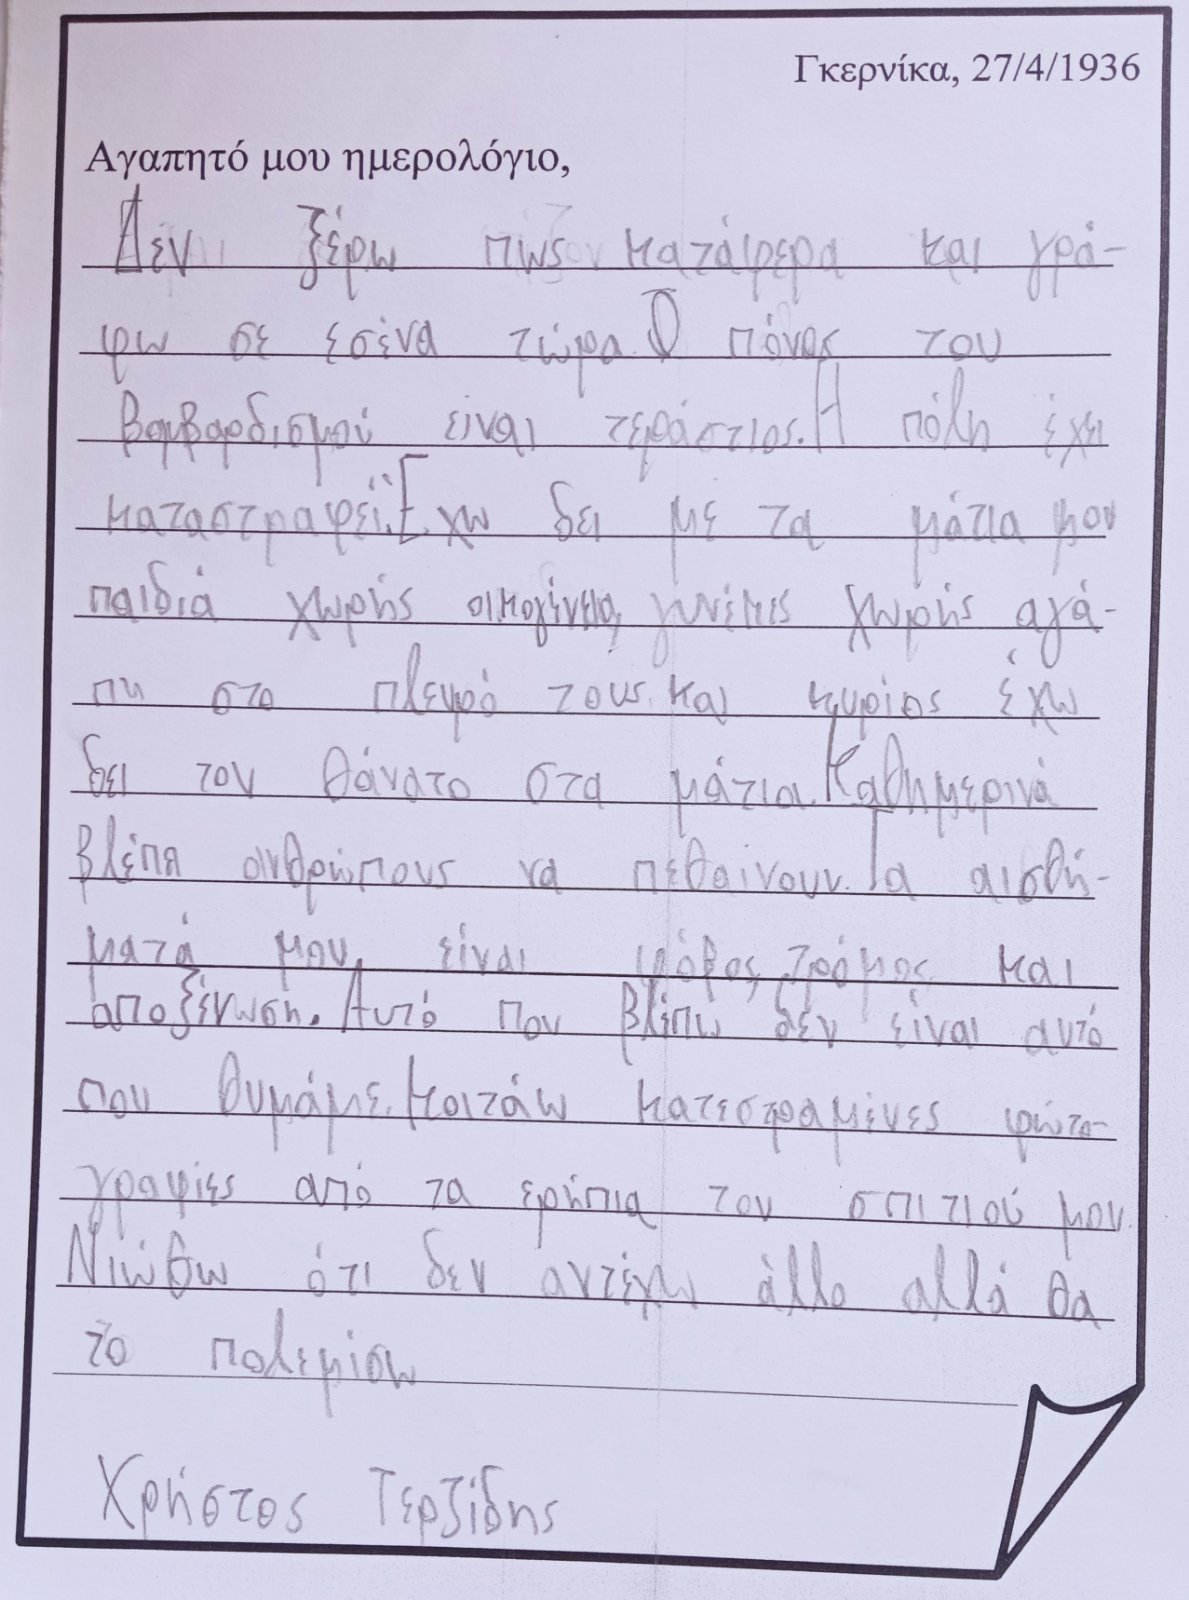 Γκερνίκα, 27/4/1936
Αγαπητό μου ημερολόγιο,
Δεν ξέρω πως κατάφερα και γρά-
φω σε εσένα τώρα. Ο πόνος του
βομβαρδισμού είναι τεράστιος. Η πόλη έχει
καταστραφεί. Έχω δει με τα μάτια μου
παιδιά χωρής οικογένεια, γυνέκες χωρής αγά-
πη στο πλευρό τους και κυρίος έχω
δει τον θάνατο στα μάτια. Καθημερινά
βλέπω ανθρώπους να πεθαίνουν. Τα αισθή-
ματά μου είναι φόβος, τρόμος και
αποξένωση. Αυτό που βλέπω δεν είναι αυτό
που θυμάμε. Κοιτάω κατεστραμένες φώτο-
γραφίες από τα ερήπια του σπιτιού μου.
Νιώθω ότι δεν αντέχω άλλο αλλά θα
το πολεμίσω
Χρήστος Τερζίδης